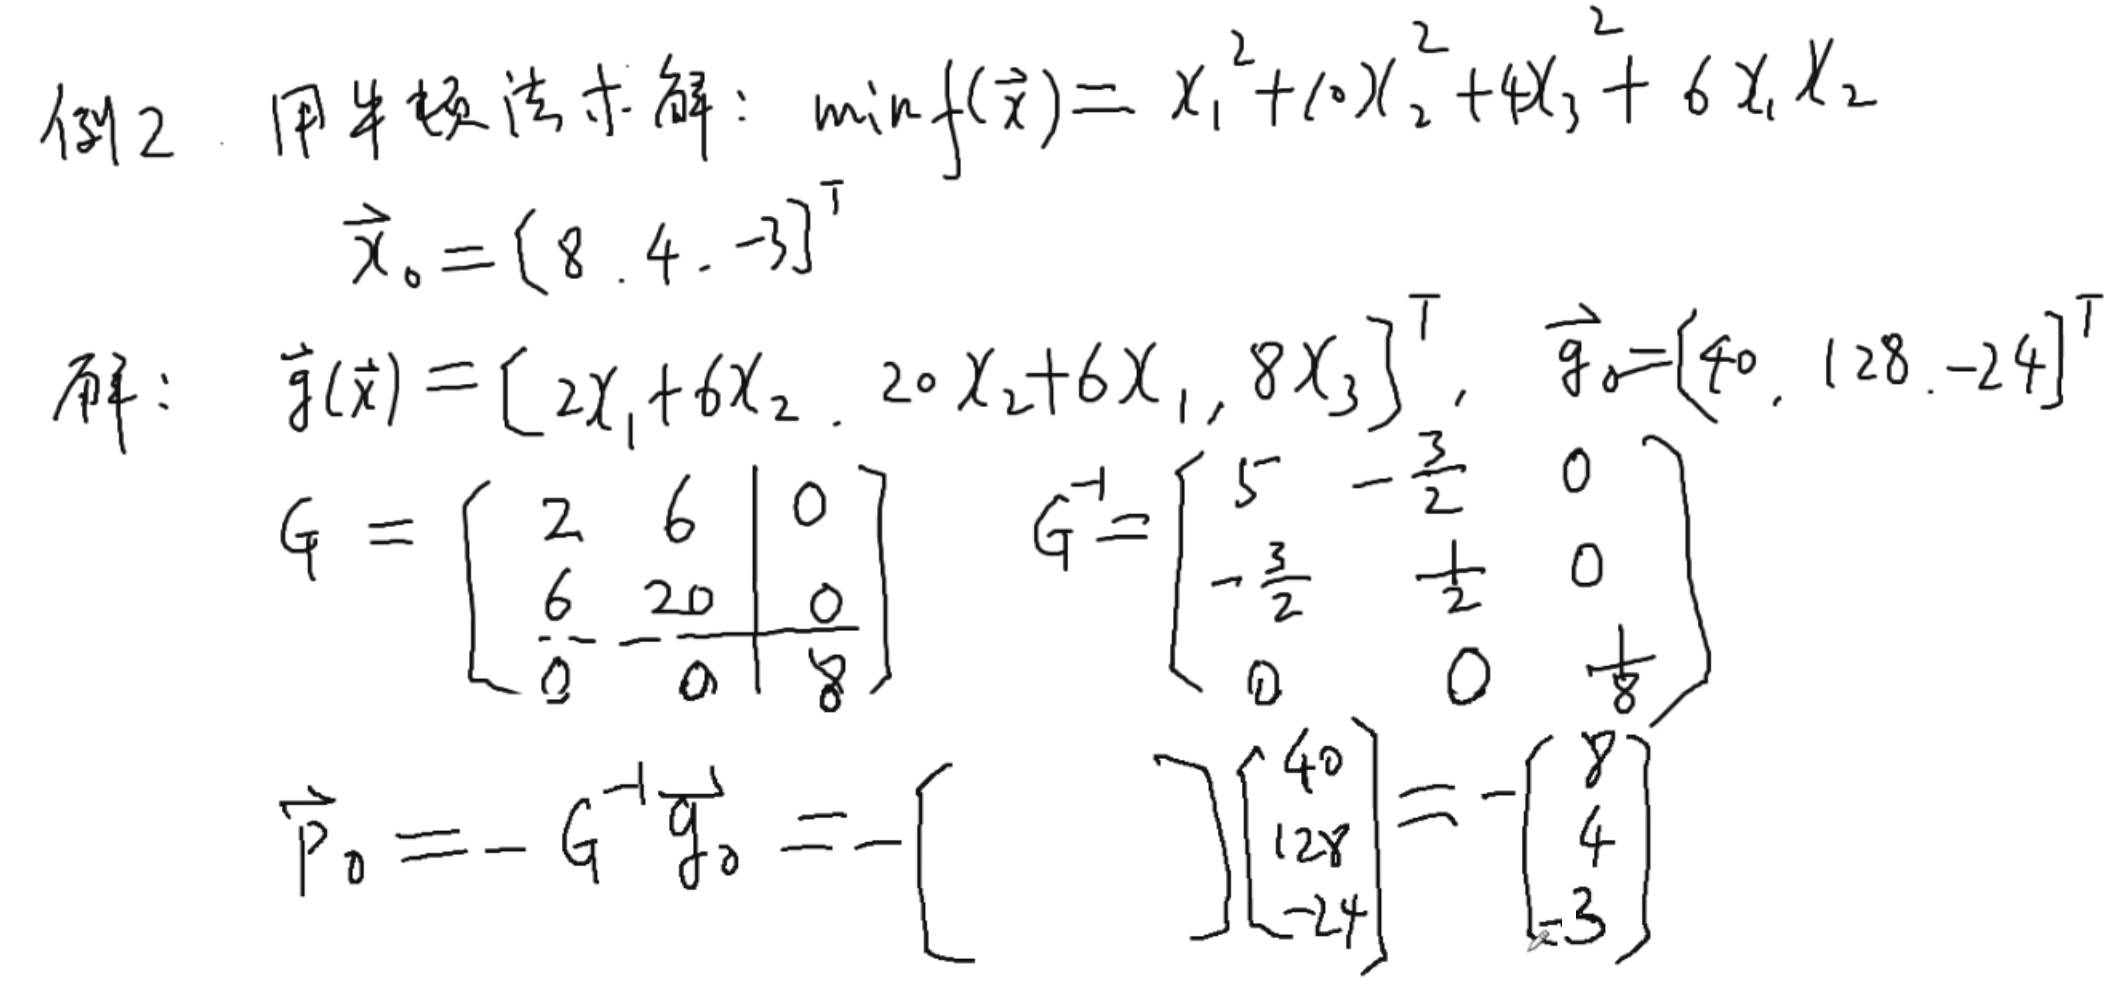 例2. 用牛顿法求解: min f(x⃗) = x₁² + 10x₂² + 4x₃² + 6x₁x₂
x⃗₀ = [8. 4. -3]ᵀ
解: g⃗(x⃗) = [2x₁+6x₂. 20x₂+6x₁, 8x₃]ᵀ, g⃗₀ = [40. 128. -24]ᵀ
G = [2 6 0; 6 20 0; 0 0 8] G⁻¹ = [5 -3/2 0; -3/2 1/2 0; 0 0 1/8]
p⃗₀ = -G⁻¹g⃗₀ = -[ ][40 128 -24] = -[8 4 -3]